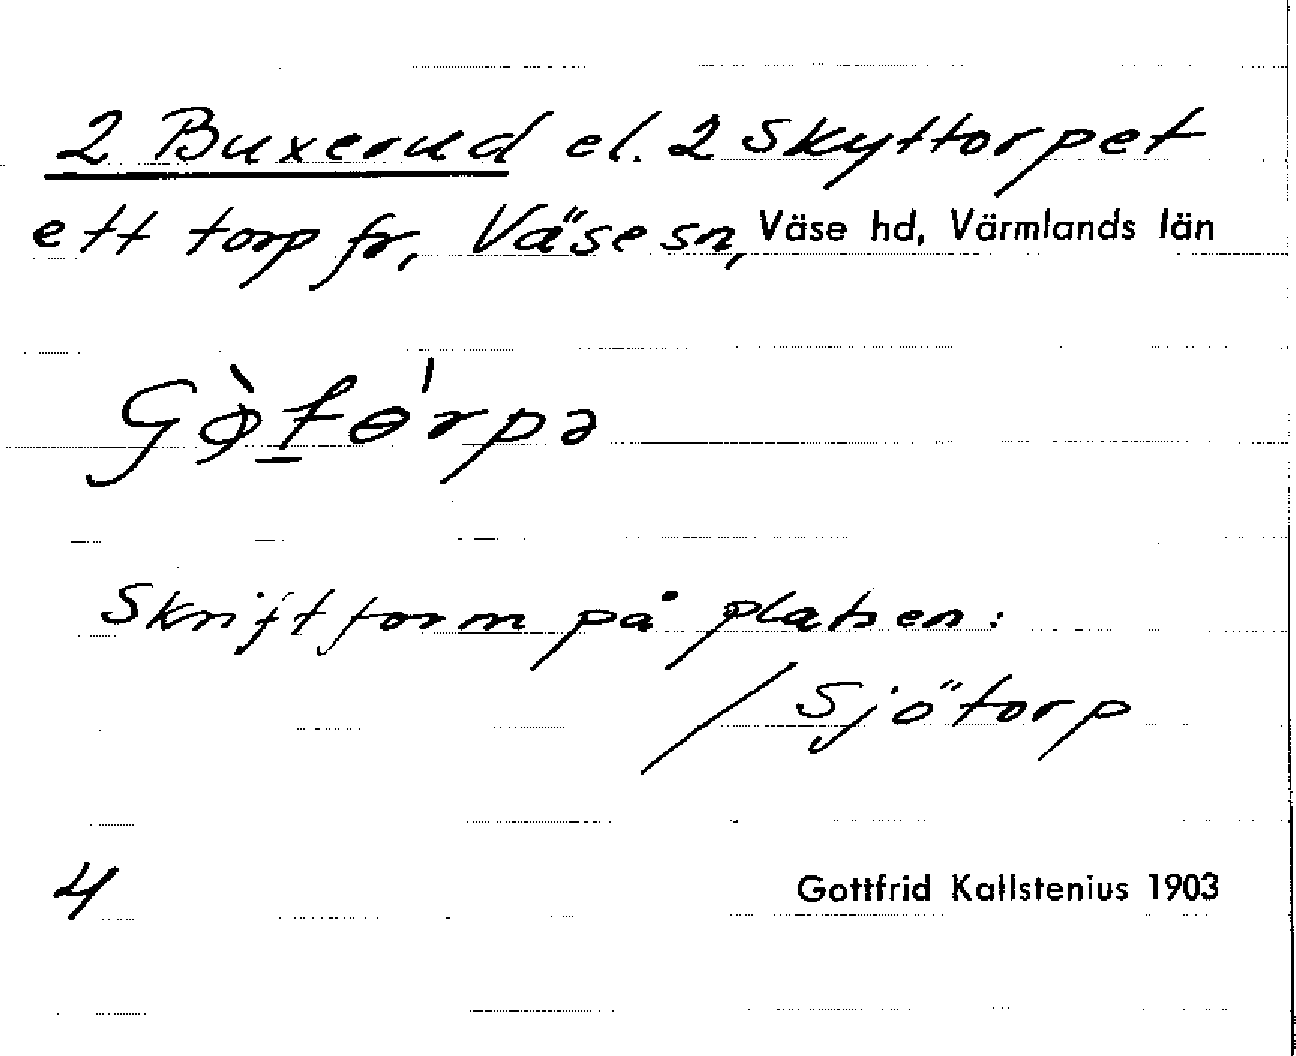 2 Buxerud el. 2 Skyttorpet
ett torp fr, Väse sn, Väse hd, Värmlands län
Skriftform på platsen:
/ Sjötorp
4 Gottfrid Kallstenius 1903